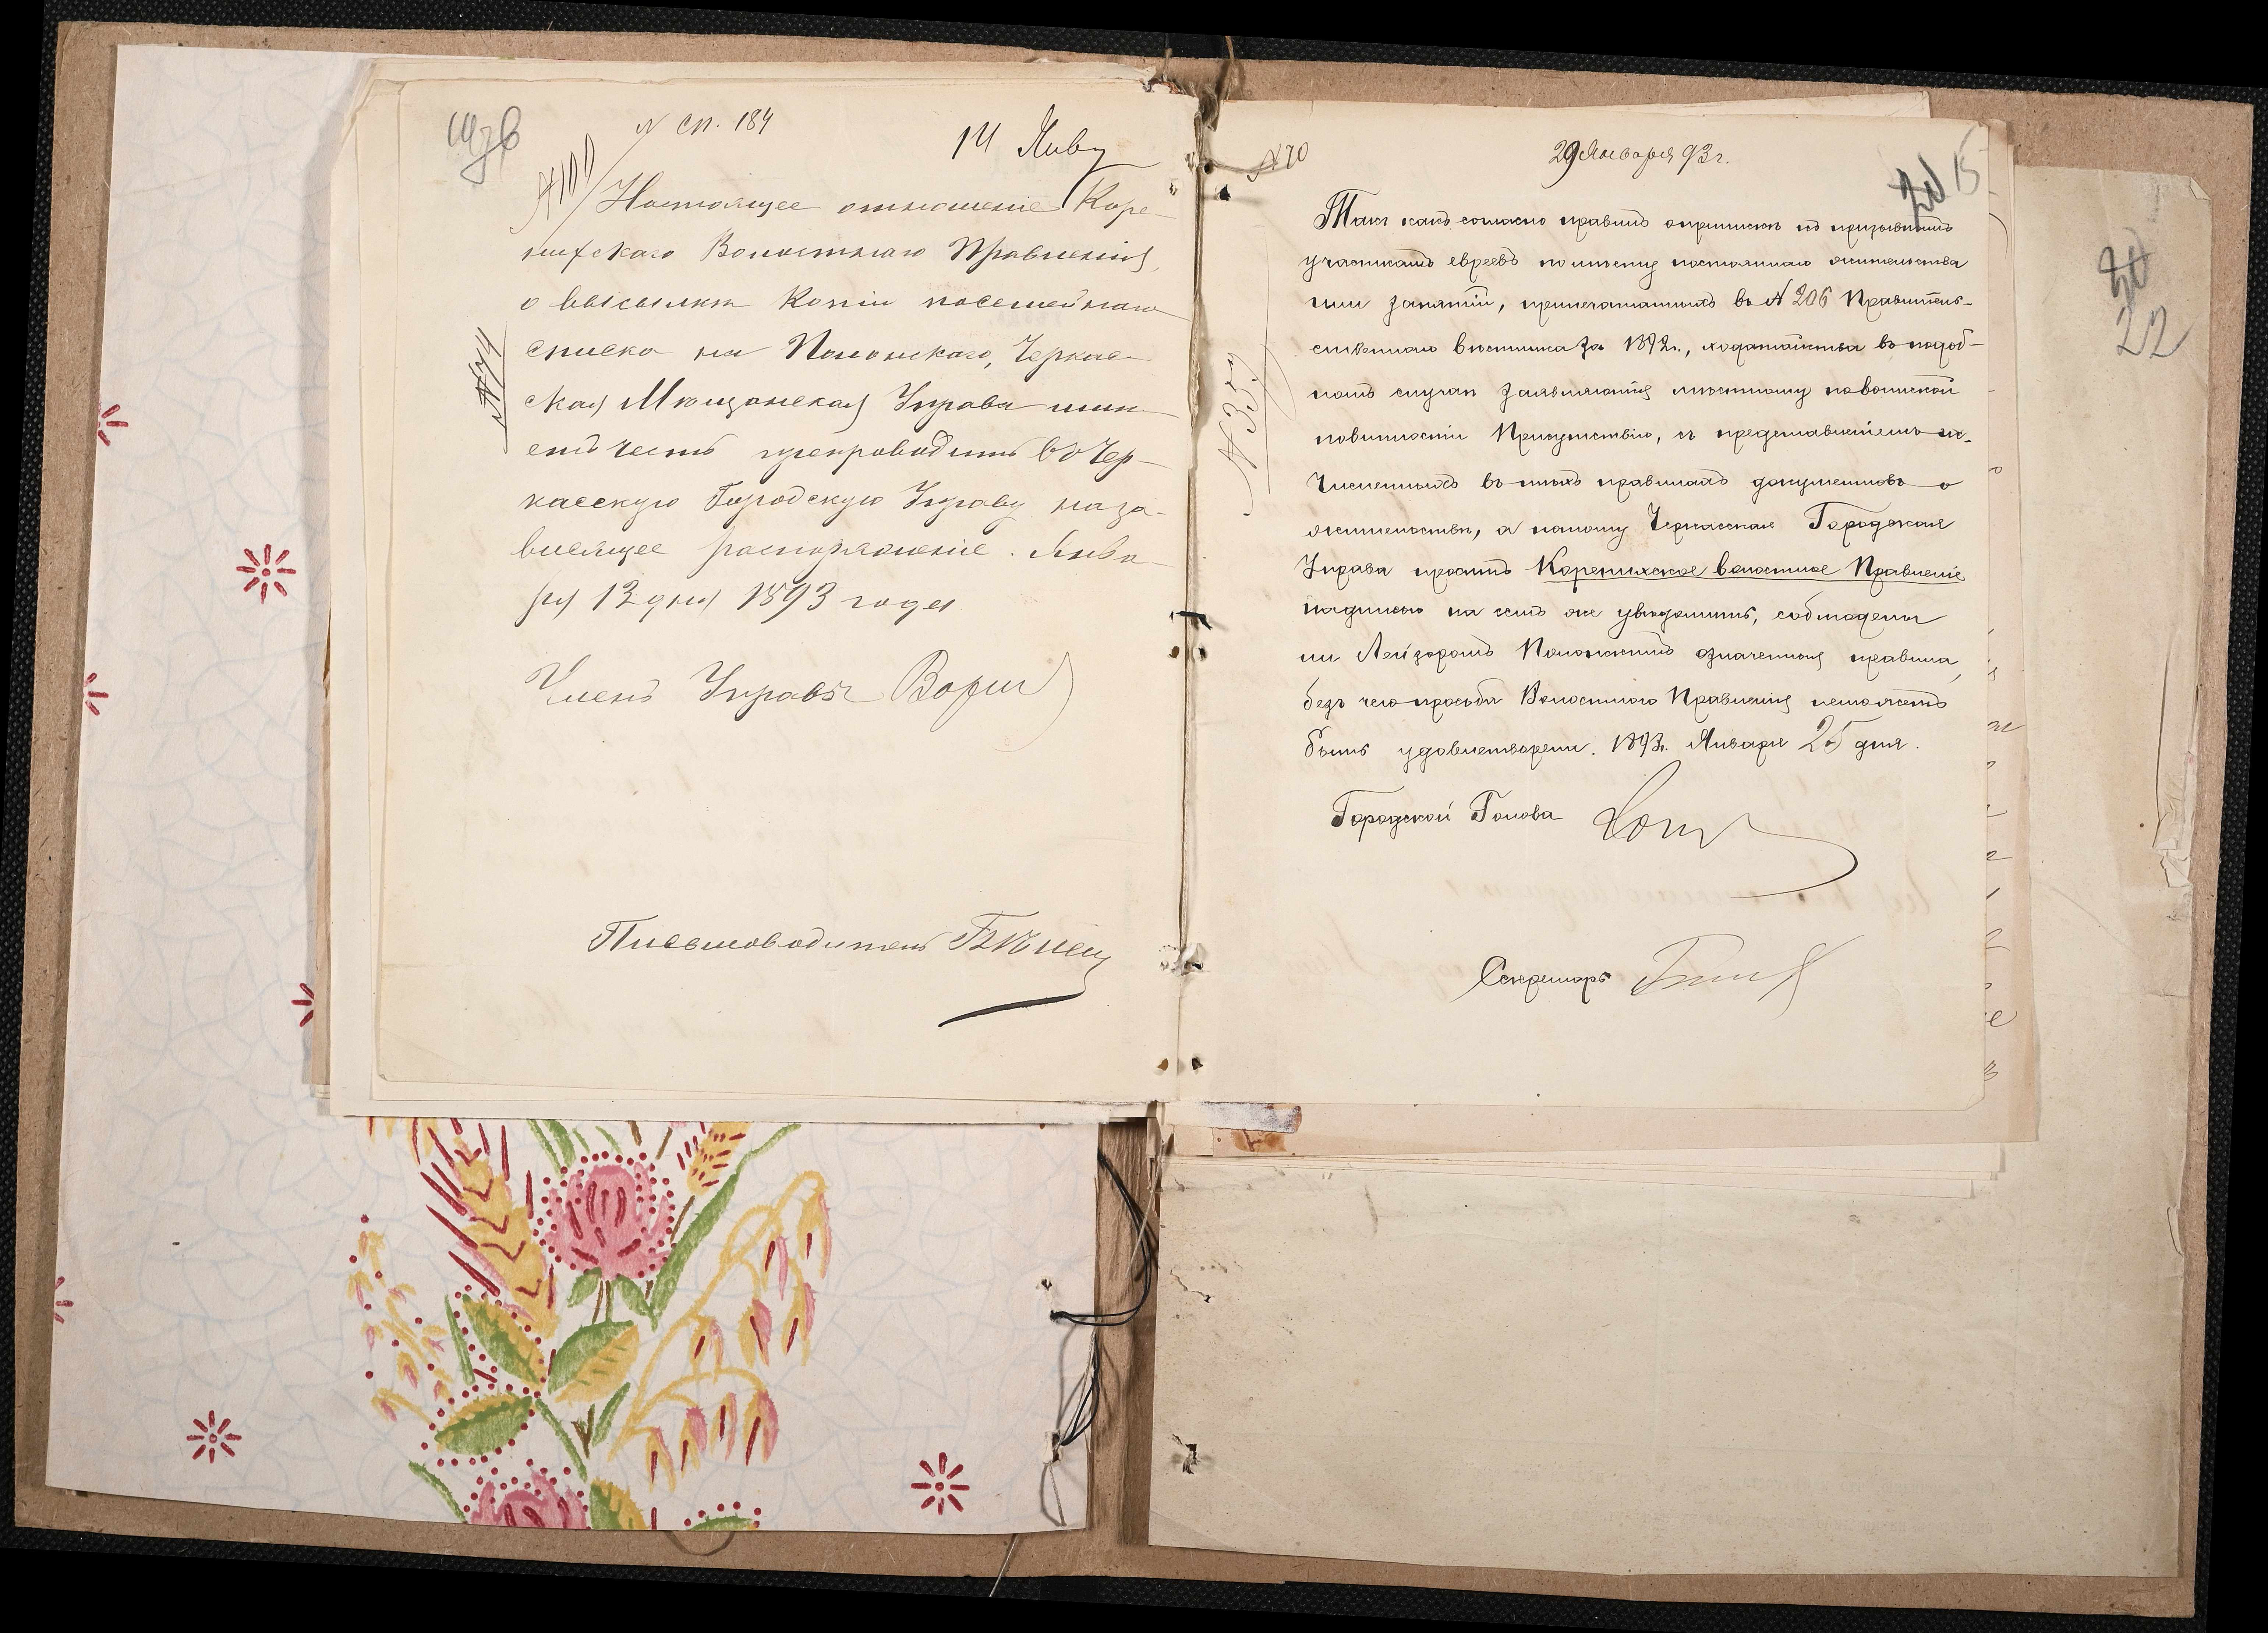 N сп. 184
14 Янв
N 100
Настоящее отношеніе Коре-
пихскаго Волостнаго Правленія,
о высылкѣ копіи посемейнаго
списка на Полонскаго, Черкас-
N 74
ская Мѣщанская Управа имѣ-
етъ честь препроводить въ Чер-
касскую Городскую Управу на за-
висящее распоряженіе. Янва-
ря 13 дня 1893 года
Членъ Управы
Письмоводитель
N 70
29 Января 93 г.
20 15
Такъ какъ согласно правилъ о припискѣ къ призывнымъ
участкамъ евреевъ по мѣсту постояннаго жительства
или занятій, припечатанныхъ въ N 206 Правитель-
ственнаго вѣстника за 1892 г., ходатайства въ подоб-
N 357
номъ случаѣ заявляются мѣстному по воинской
повинности Присутствію, съ представленіемъ ис-
численныхъ въ тѣхъ правилахъ документовъ о
жительствѣ, а потому Черкасская Городская
Управа проситъ Корепихское волостное Правленіе
надписью на семъ же увѣдомить, соблюдены
ли Лейзоромъ Полонскимъ означенныя правила,
безъ чего просьба Волостного Правленія не можетъ
быть удовлетворена. 1893 г. Января 25 дня.
Городской Голова
Секретарь
20
22